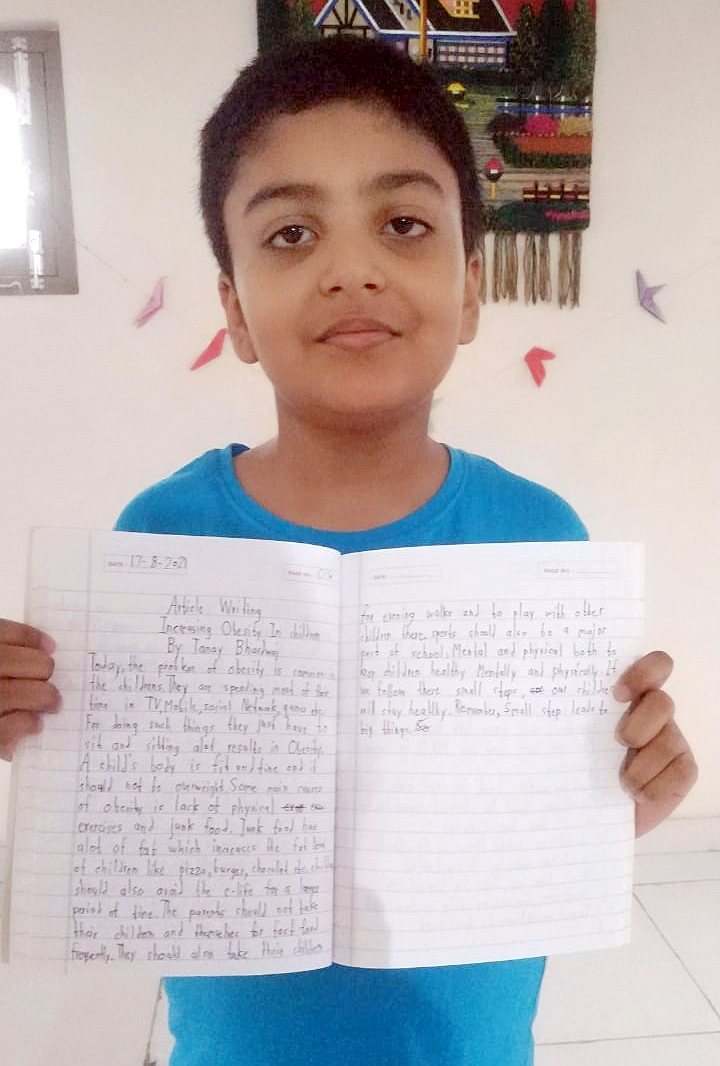 DATE: 17-8-2021
PAGE NO.:
Article Writing
Increasing Obesity In children
By Tanay Bhardwaj
Today, the problem of obesity is common in
the childrens. They are spending most of their
time in TV, Mobile, social Network, games etc.
For doing such things they just have to
sit and sitting alot results in Obesity.
A child's body is fit and fine and it
should not be overweight. Some main causes
of obesity is lack of physical
exercises and junk food. Junk food has
alot of fat which increases the fat level
of children like pizza, burger, chocolate etc. children
should also avoid the e-life for a longer
period of time. The parents should not take
their children and themselves for fast food
frequently. They should also take their children
DATE:
PAGE NO.:
for evening walks and to play with other
children there. sports should also be a major
part of school. Mental and physical both to
keep children healthy Mentally and physically. If
we follow these small steps, our children
will stay healthy. Remember, Small step leads to
big things.